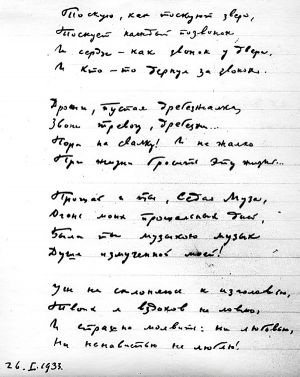 Тоскую, как тоскуют звери,
Тоскует каждый позвонок,
И сердце – как звонок у двери,
И кто-то дернул за звонок.
Дрожи, пустая дребезжалка,
Звони тревогу, дребезжи...
Пора на свалку! И не жалко
При жизни бросить эту жизнь...
Прощай и ты, Седая Муза,
Огонь моих прощальных дней,
Была ты музыкою музык
Душе измученной моей!
Уж не склоняюсь к изголовью,
Твоих я вздохов не ловлю,
И страшно молвить: ни любовью,
Ни ненавистью не люблю!
26.I.1933.